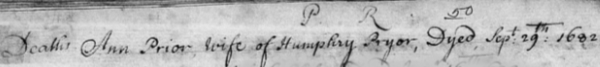 P R 50
Deaths Ann Prior Wife of Humphry Pryor, Dyed Sept. 29th: 1682